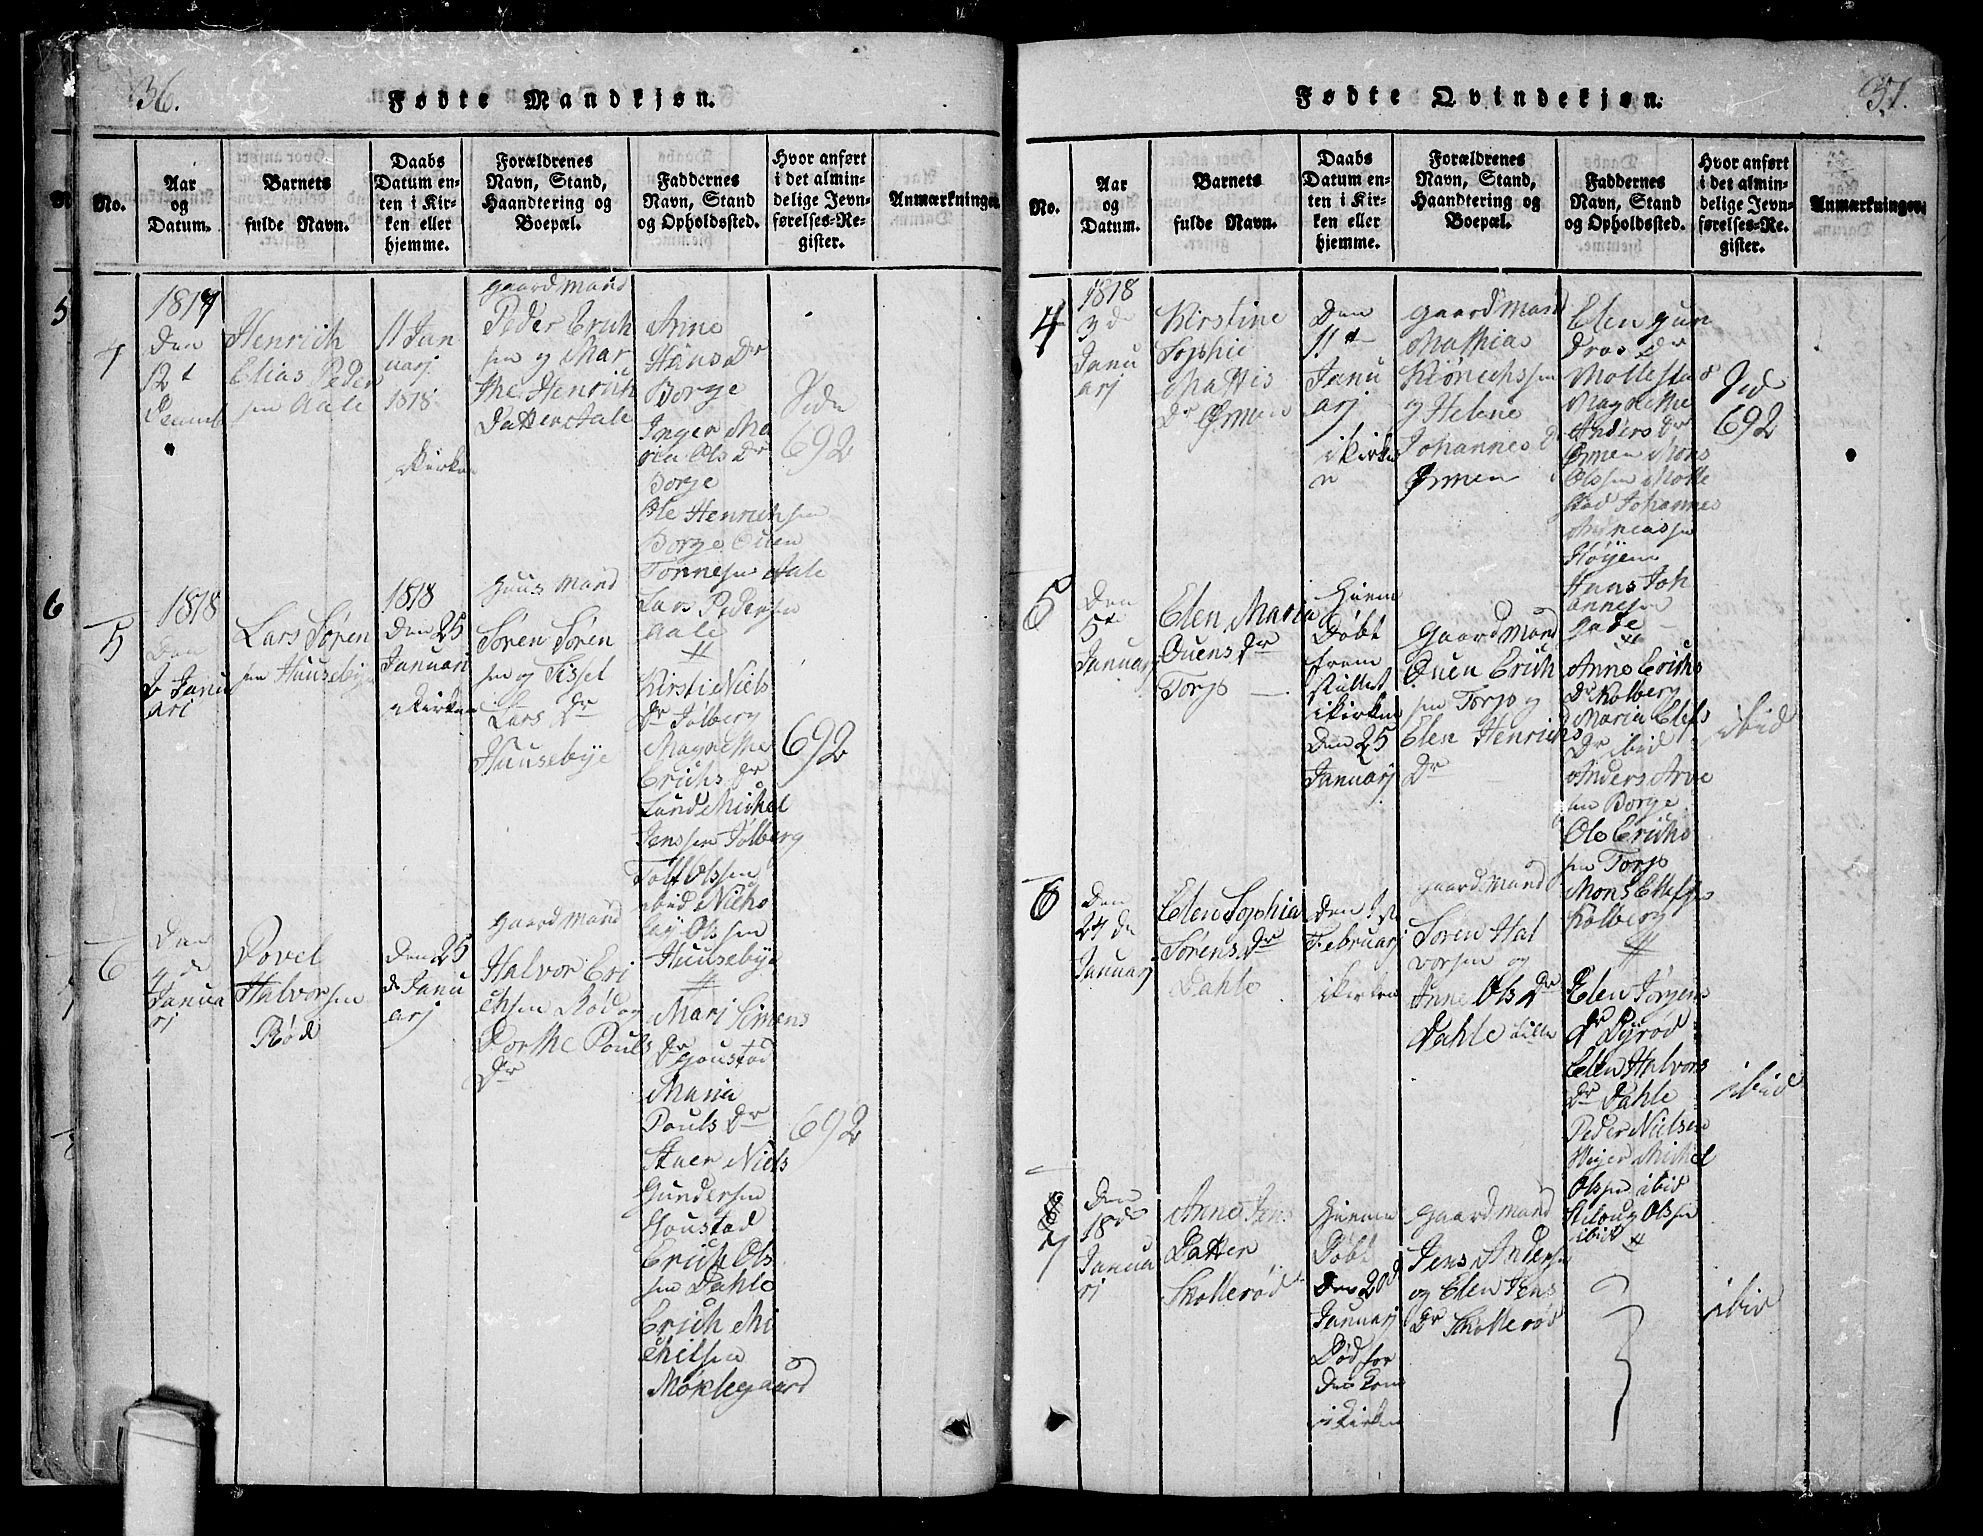 36.
Fødte Mandkjøn.
No.
Aar
og
Datum.
Barnets
fulde Navn.
Daabs
Datum en-
ten i Kir-
ken eller
hjemme.
Forældrenes
Navn, Stand,
Haandtering og
Boepæl.
Faddernes
Navn, Stand
og Opholdssted.
Hvor anført
i det almin-
delige Jevn-
førelses-Re-
gister.
Anmærkninger.
1817
Den
12t
Henrich
Elias Peder
sen Aale
11 Jan
uarj
1818
i Kirken
gaardmand
Peder Erich
sen og Mar
the Henrich
Datter Aale
Anne
Hans Dr
Borge
Inger Ma
ria Ols Dr
Borge
Ole Henrichsen
Borge Ouen
Tonnesen Aale
Lars Pedersen
Aale
Vide
692
5
1818
Den
2 Janu
ari
Lars Søren
sen Huusebye
1818
Den 25
Januari
i Kirken
Huusmand
Søren Søren
sen og Sissel
Lars Dr
Huusebye
Kirsti Niels
Dr Jølberg
Magrethe
Erichs Dr
Lund Michel
Jenssen Jølberg
Tolf Olssen
ibid Nicho
lay Olssen
Huusebye
692
6
Den
4 de
Janua
rj
Povel
Halvorsen
Rød
Den 25
de Janu
arj
gaardmand
Halvor Eri
chsen Rød og
Dorthe Pouls
Dr
Marj Simens
Dr goustad
Maria
Pouls Dr
Skaer Niels
Gundersen
Goustad
Erich Ols
sen Dahle
Erich Mi
chelsen
Moklegaard
692
37.
Fødte Qvindekjøn.
No.
Aar
og
Datum.
Barnets
fulde Navn.
Daabs
Datum en-
ten i Kir-
ken eller
hjemme.
Forældrenes
Navn, Stand,
Haandtering og
Boepæl.
Faddernes
Navn, Stand
og Opholdssted.
Hvor anført
i det almin-
delige Jevn-
førelses-Re-
gister.
Anmærkninger.
4
1818
3 de
Janu
arj
Kirstine
Sophie
Mattis
Dr Ormen
Den
11te
Janu
arj
i Kirke
n
gaardmand
Mathias
og Helene
Johannes D
Ormen
Elen gun
Dr
Mollestad
Magrethe
Anders Dr
Ormen Mons
Olssen Molle
stad Johannes
Andreassen
Høyen
Hans Joh
annesen
Vid
692
5
Den
5te
Januarj
Elen Maria
Ouens Dr
Torp
Hiem
Døbt
frem
stillet
i Kirken
Den 25
Januarj
gaardmand
Ouen Erich
sen Torp og
Elen Henrichs
Dr
Anne Erichs
Dr Kolberg
Maria Elefs
Dr ibid
Anders Arve
sen Borge
Ole Erichs
sen Torp
Mons
Kolberg
ibid
6
Den
24 de
Januarj
Elen Sophia
Sørens Dr
Dahle
Den 1st
Februarj
i Kirken
gaardmand
Soren Hal
vorsen og
Anne Ols Dr
Dahle Lille
Elen Jørgens
Dr Dyrød
Elen Halvors
Dr Dahle
Peder Nielsen
Michel
Olssen ibid
Olssen
ibid
ibid
7
Den
18de
Janua
rj
Anne Jens
Datter
Skotterød
Hiemme
Døbt
Den 20d
Januarj
Død før
Den kom
i Kirken
gaardmand
Jens Andersen
og Elen Jens
Dr Skotterød
ibid